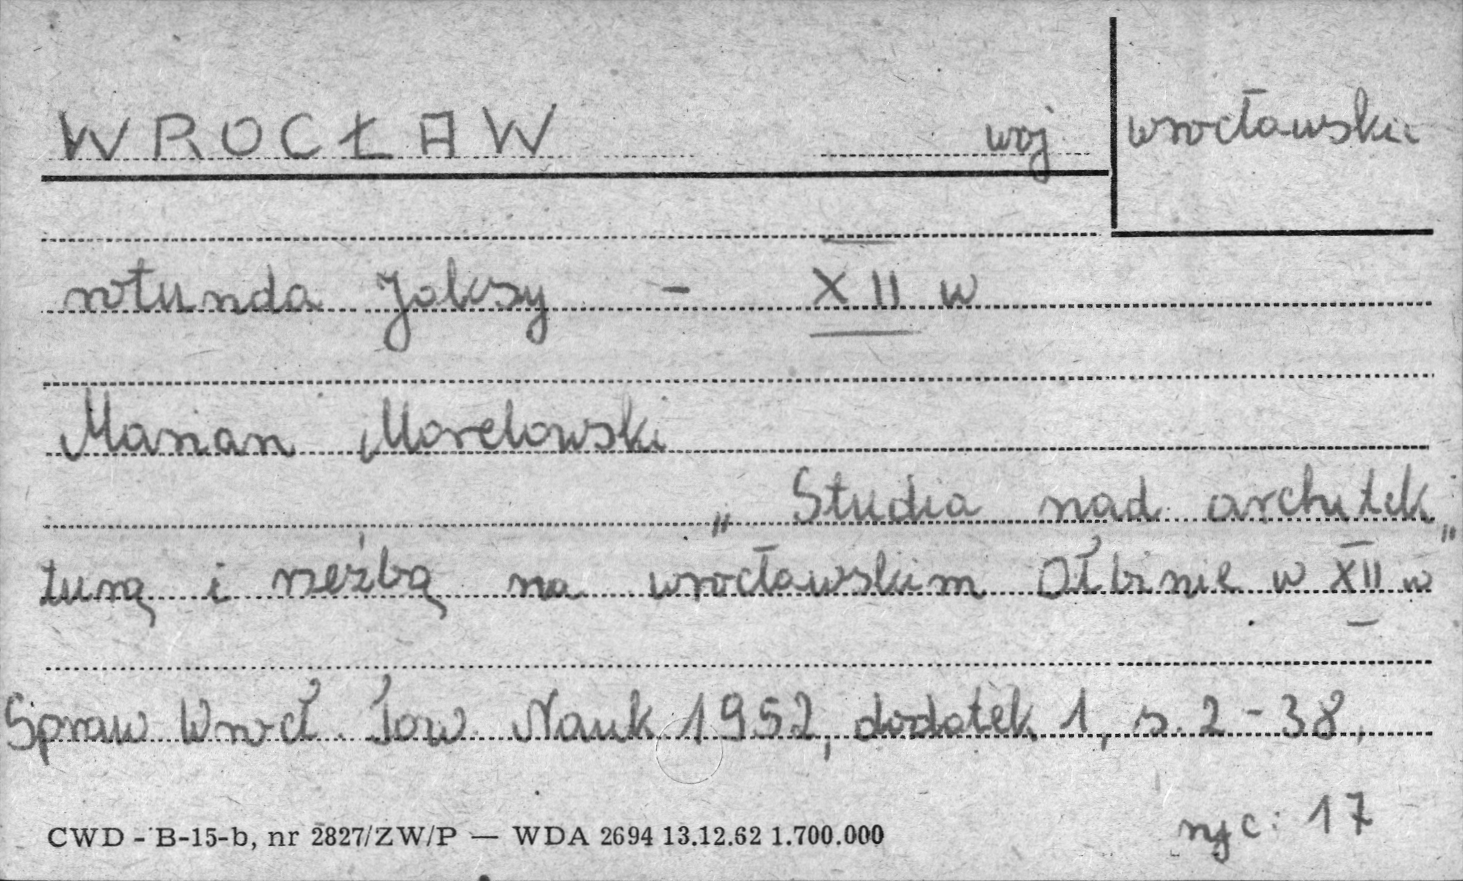 WROCŁAW woj wrocławskie
rotunda Jaksy - XII w
Marian Morelowski
„ Studia nad architek„
turą i rzeźbą na wrocławskim Ołbinie w XII w
Spraw Wrocł. Tow. Nauk 1952, dodatek 1, s. 2-38,
ryc: 17
CWD - B-15-b, nr 2827/ZW/P — WDA 2694 13.12.62 1.700.000